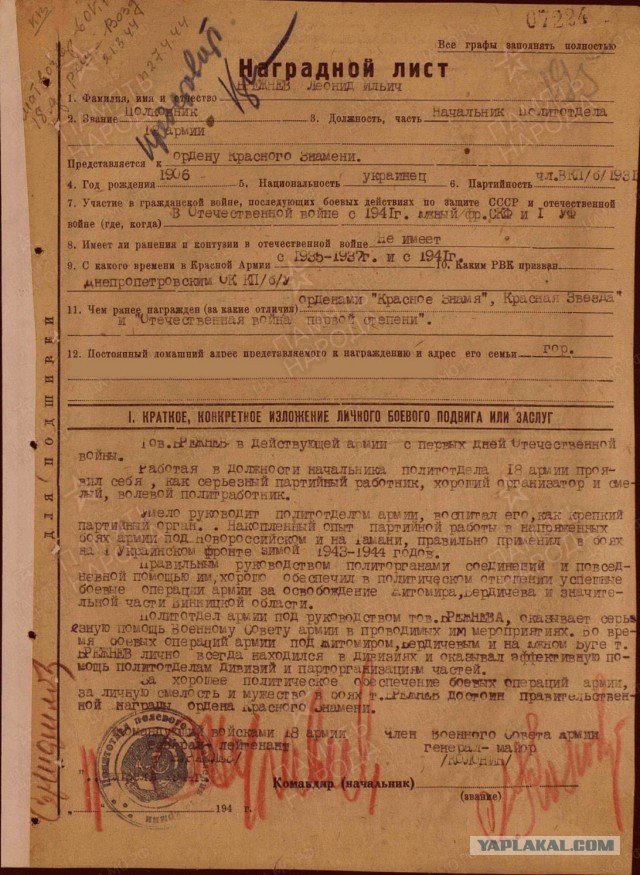 07224
Все графы заполнять полностью
Наградной лист
1. Фамилия, имя и отчество БРЕЖНЕВ Леонид Ильич
2. Звание Полковник 3. Должность, часть Начальник политотдела
армии
Представляется к ордену Красного Знамени.
4. Год рождения 1906 5. Национальность украинец 6. Партийность чл.ВКП/б/1931
7. Участие в гражданской войне, последующих боевых действиях по защите СССР и отечественной
войне (где, когда) В Отечественной войне с 1941г. южный фр.СКФ и I УФ
8. Имеет ли ранения и контузии в отечественной войне Не имеет
9. С какого времени в Красной Армии с 1935-1937г. и с 1941г. 10. Каким РВК призван
Днепропетровским ОК КП/б/У
11. Чем ранее награжден (за какие отличия) орденами "Красное Знамя", Красная Звезда"
и "Отечественная война первой степени".
12. Постоянный домашний адрес представляемого к награждению и адрес его семьи гор.
ДЛЯ ПОДШИВКИ
I. КРАТКОЕ, КОНКРЕТНОЕ ИЗЛОЖЕНИЕ ЛИЧНОГО БОЕВОГО ПОДВИГА ИЛИ ЗАСЛУГ
Тов.БРЕЖНЕВ в действующей армии с первых дней Отечественной
войны.
Работая в должности начальника политотдела 18 армии проя-
вил себя, как серьезный партийный работник, хороший организатор и сме-
лый, волевой политработник.
Умело руководит политотделом армии, воспитал его, как крепкий
партийный орган. Накопленный опыт партийной работы в напряженных
боях армии под Новороссийском и на Тамани, правильно применил в боях
на I Украинском фронте зимой 1943-1944 годов.
Правильным руководством политорганами соединений и повсед-
невной помощью им, хорошо обеспечил в политическом отношении успешные
боевые операции армии за освобождение Житомира, Бердичева и значи-
тельной части Винницкой области.
Политотдел армии под руководством тов.БРЕЖНЕВА, оказывает серь-
езную помощь Военному Совету армии в проводимых им мероприятиях. Во вре-
мя боевых операций армии под Житомиром, Бердичевым и на южном Буге т.
БРЕЖНЕВ лично всегда находился в дивизиях и оказывал эффективную по-
мощь политотделам дивизий и парторганизациям частей.
За хорошее политическое обеспечение боевых операций армии,
за личную смелость и мужество в боях т.БРЕЖНЕВ достоин правительствен-
ной награды ордена Красного Знамени.
Командующий войсками 18 армии Член Военного Совета армии
генерал-лейтенант генерал-майор
/КОЛОНИН/
Командир (начальник)
(звание)
194 г.
YAPLAKAL.COM